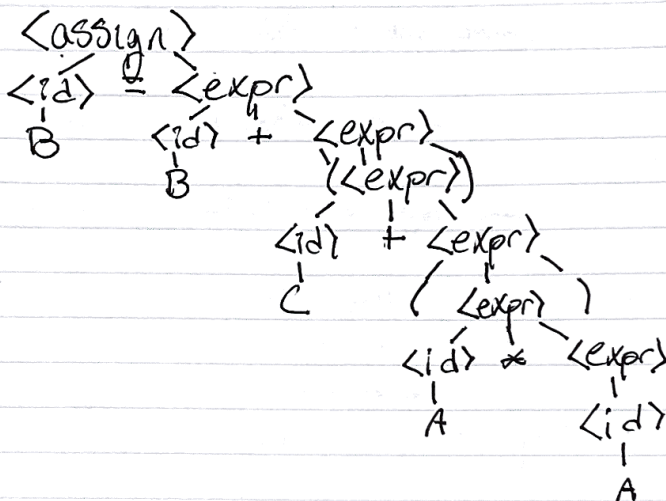 <assign>
<id> = <expr>
B <id> + <expr>
B (<expr>)
<id> + <expr>
C ( <expr> )
<id> * <expr>
A <id>
A